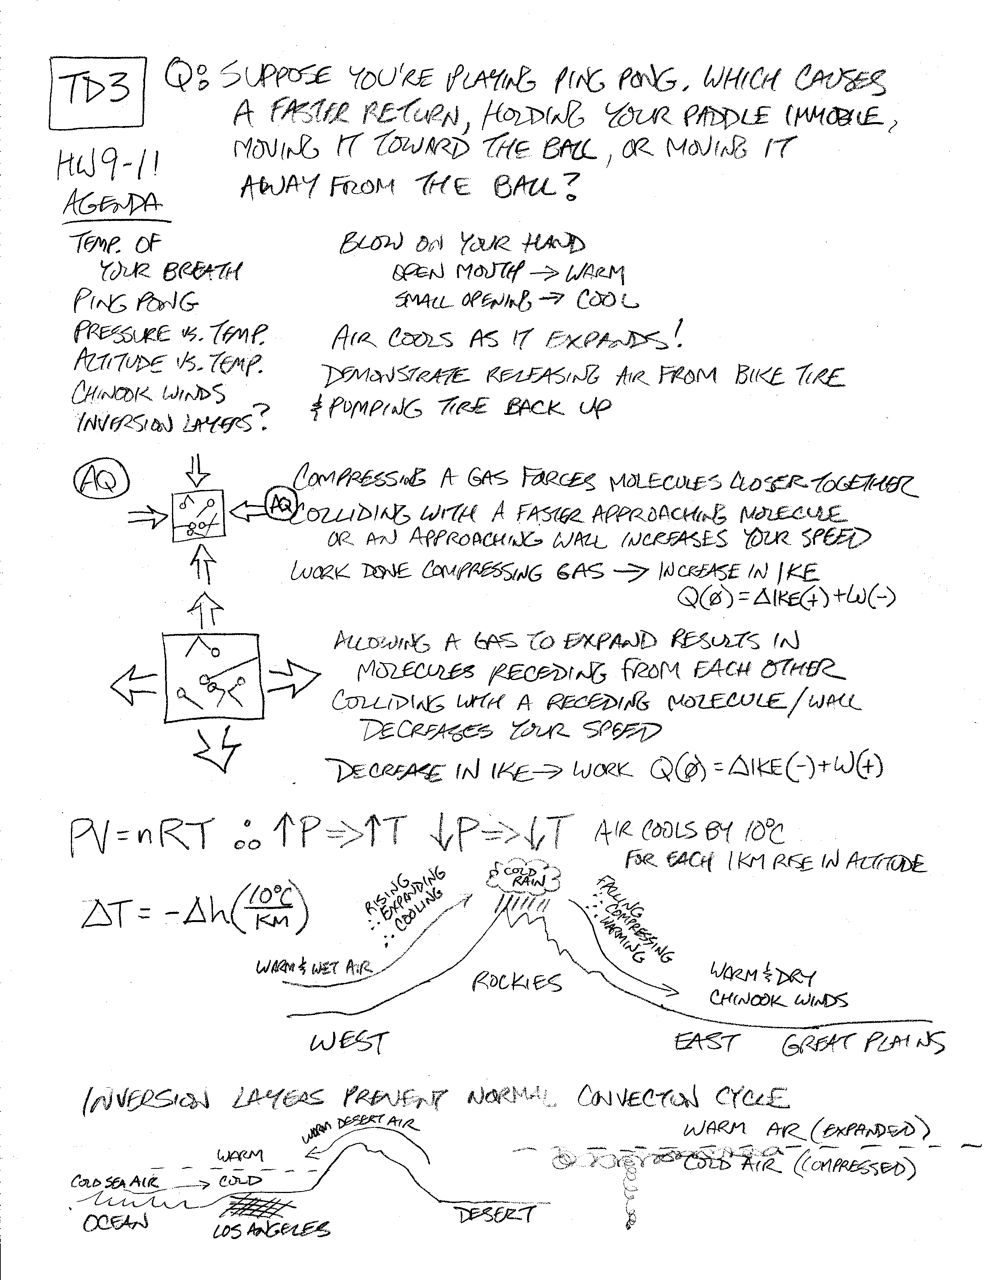 TD3
Q: SUPPOSE YOU'RE PLAYING PING PONG. WHICH CAUSES
A FASTER RETURN, HOLDING YOUR PADDLE IMMOBILE,
MOVING IT TOWARD THE BALL, OR MOVING IT
AWAY FROM THE BALL?
HW9-11
AGENDA
TEMP. OF
YOUR BREATH
PING PONG
PRESSURE VS. TEMP.
ALTITUDE VS. TEMP.
CHINOOK WINDS
INVERSION LAYERS?
BLOW ON YOUR HAND
OPEN MOUTH → WARM
SMALL OPENING → COOL
AIR COOLS AS IT EXPANDS!
DEMONSTRATE RELEASING AIR FROM BIKE TIRE
& PUMPING TIRE BACK UP
AQ
AQ
COMPRESSING A GAS FORCES MOLECULES CLOSER TOGETHER
COLLIDING WITH A FASTER APPROACHING MOLECULE
OR AN APPROACHING WALL INCREASES YOUR SPEED
WORK DONE COMPRESSING GAS → INCREASE IN IKE
Q(∅) = ΔIKE(+) + W(-)
ALLOWING A GAS TO EXPAND RESULTS IN
MOLECULES RECEDING FROM EACH OTHER
COLLIDING WITH A RECEDING MOLECULE/WALL
DECREASES YOUR SPEED
DECREASE IN IKE → WORK Q(∅) = ΔIKE(-) + W(+)
PV = nRT ∴ ↑P ⇒ ↑T ↓P ⇒ ↓T
AIR COOLS BY 10°C
FOR EACH 1KM RISE IN ALTITUDE
ΔT = -Δh(10°C/KM)
RISING
∴ EXPANDING
∴ COOLING
COLD
RAIN
FALLING
∴ COMPRESSING
∴ WARMING
WARM & WET AIR
ROCKIES
WARM & DRY
CHINOOK WINDS
WEST
EAST
GREAT PLAINS
INVERSION LAYERS PREVENT NORMAL CONVECTION CYCLE
WARM DESERT AIR
WARM AIR (EXPANDED)
WARM
COLD AIR (COMPRESSED)
COLD SEA AIR → COLD
OCEAN
LOS ANGELES
DESERT